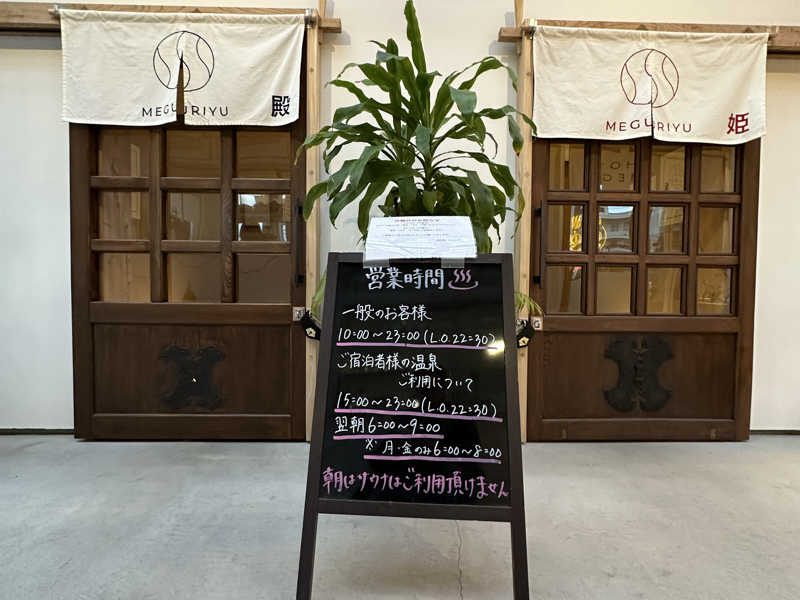 MEGURIYU 殿
MEGURIYU 姫
営業時間♨
一般のお客様
10:00～23:00 (L.O.22:30)
ご宿泊者様の温泉
ご利用について
15:00～23:00 (L.O.22:30)
翌朝6:00～9:00
※月・金のみ6:00～8:00
朝はサウナはご利用頂けません